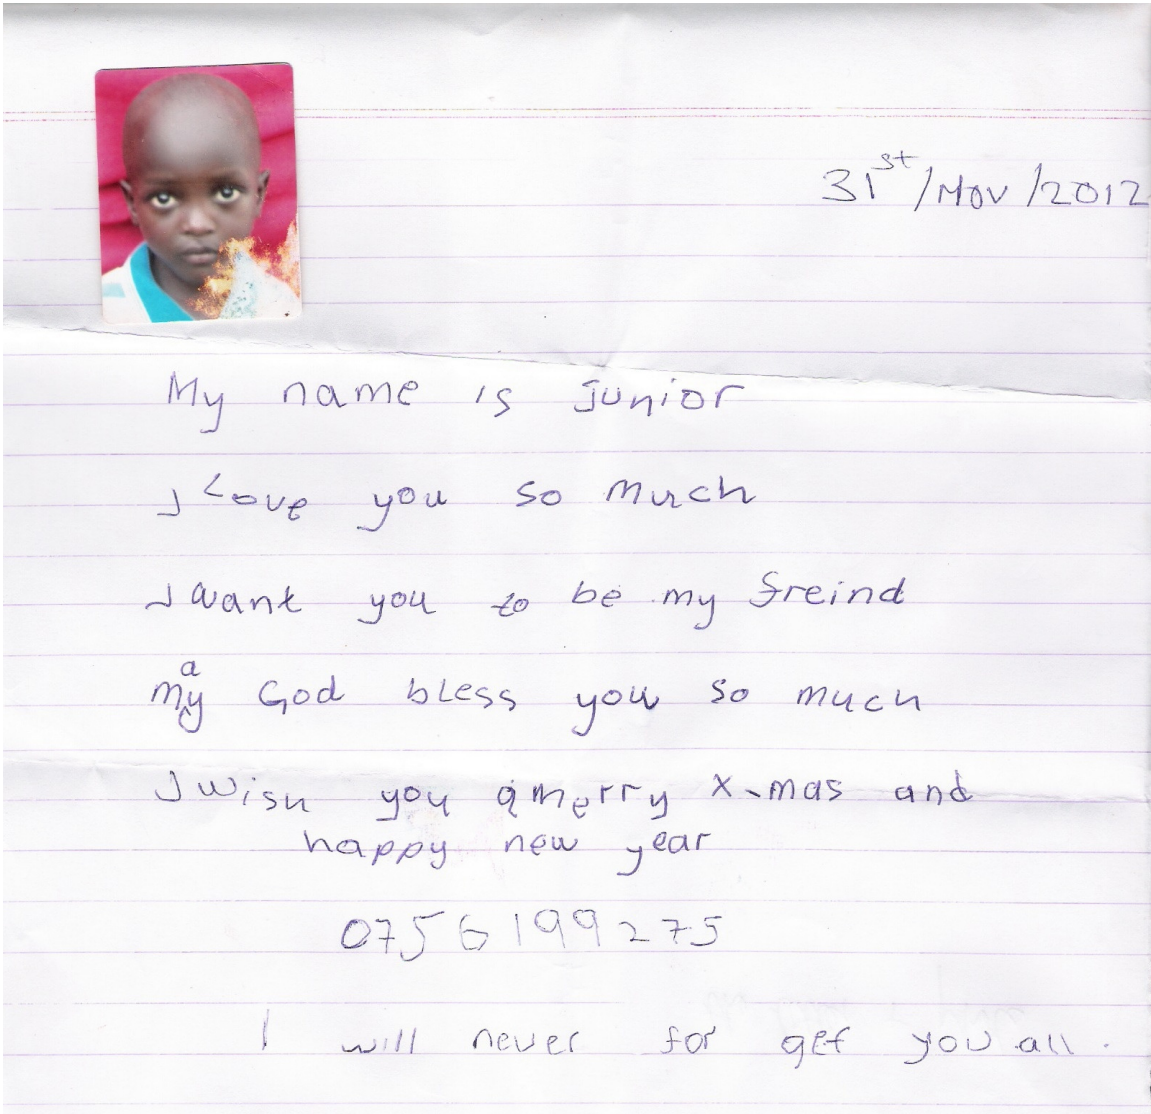 31st/Nov/2012
My name is junior
I Love you so much
I want you to be my freind
may God bless you so much
I wish you a merry X-mas and
happy new year
0756199275
I will never for get you all.